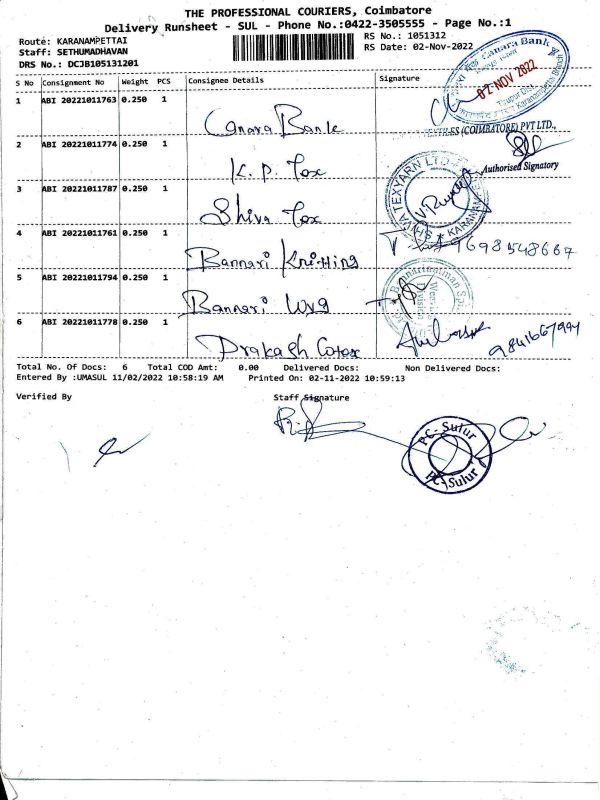 THE PROFESSIONAL COURIERS, Coimbatore
Delivery Runsheet - SUL - Phone No.:0422-3505555 - Page No.:1
Route: KARANAMPETTAI
RS No.: 1051312
Staff: SETHUMADHAVAN
RS Date: 02-Nov-2022
DRS No.: DCJB105131201
Canara Bank
02 NOV 2022
S No Consignment No Weight PCS Consignee Details Signature
1 ABI 20221011763 0.250 1 Canara Bank
(COIMBATORE) PVT LTD.,
2 ABI 20221011774 0.250 1 K. P. Tex
Authorised Signatory
3 ABI 20221011787 0.250 1 Shiva Tex
SHIVA TEXYARN LTD
4 ABI 20221011761 0.250 1 Bannari Knitting 9698548667
5 ABI 20221011794 0.250 1 Bannari
6 ABI 20221011778 0.250 1 Prakash Cotex
Total No. Of Docs: 6 Total COD Amt: 0.00 Delivered Docs: Non Delivered Docs:
Entered By :UMASUL 11/02/2022 10:58:19 AM Printed On: 02-11-2022 10:59:13
Verified By Staff Signature
PC- Sulur
PC- Sulur